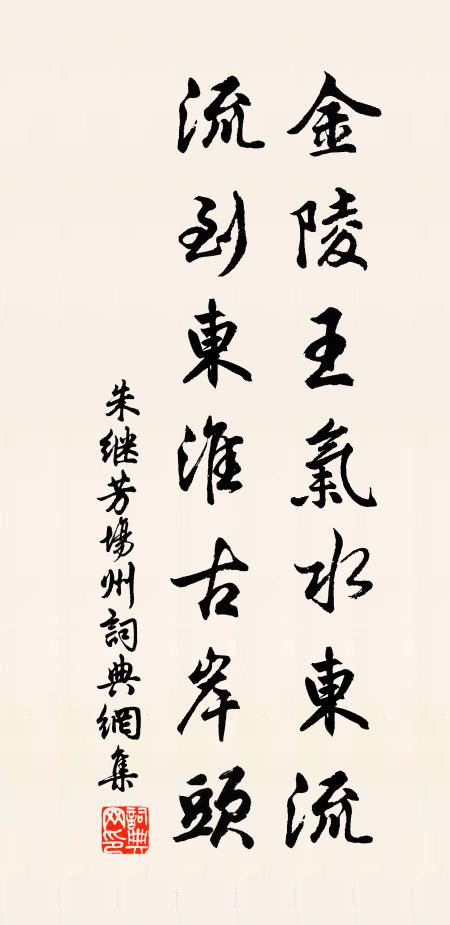 金陵王氣水東流
流到東淮古岸頭
朱继芳揚州詞典網集
詞典網印